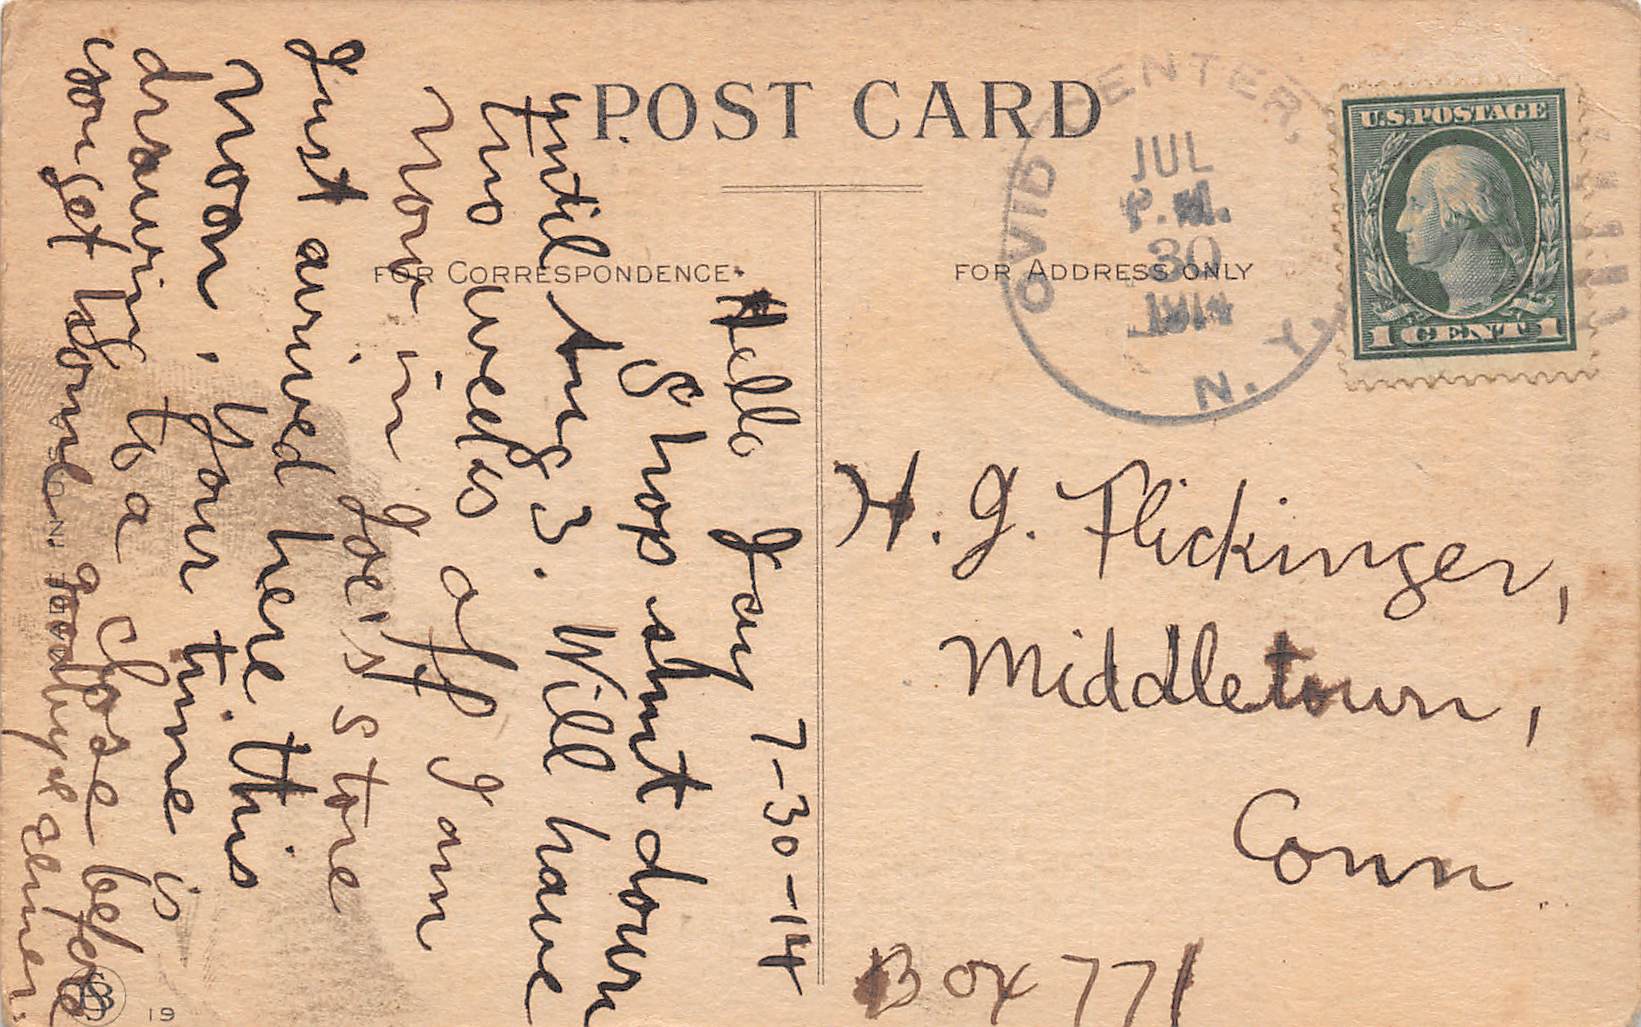 POST CARD
FOR CORRESPONDENCE
FOR ADDRESS ONLY
OVID CENTER, N. Y.
JUL
30
P.M.
1914
U.S. POSTAGE
1 CENT 1
H. J. Flickinger,
Middletown,
Conn
Box 771
Hello Jay 7-30-14
Shop shut down
until Aug 3. Will have
two weeks off I am
now in Joe's store
Just arrived here this
noon. Your time is
drawing to a close before
you get home goodbye elmer.
19